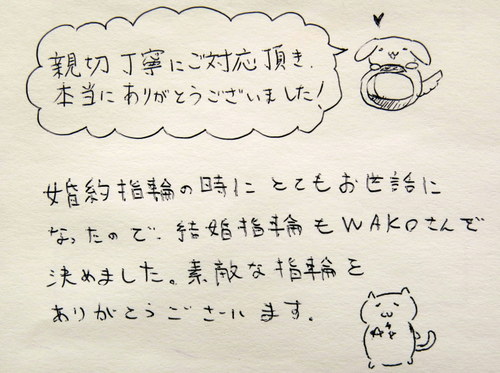 親切丁寧にご対応頂き、
本当にありがとうございました!
婚約指輪の時にとてもお世話に
なったので、結婚指輪もWAKOさんで
決めました。素敵な指輪を
ありがとうございます。